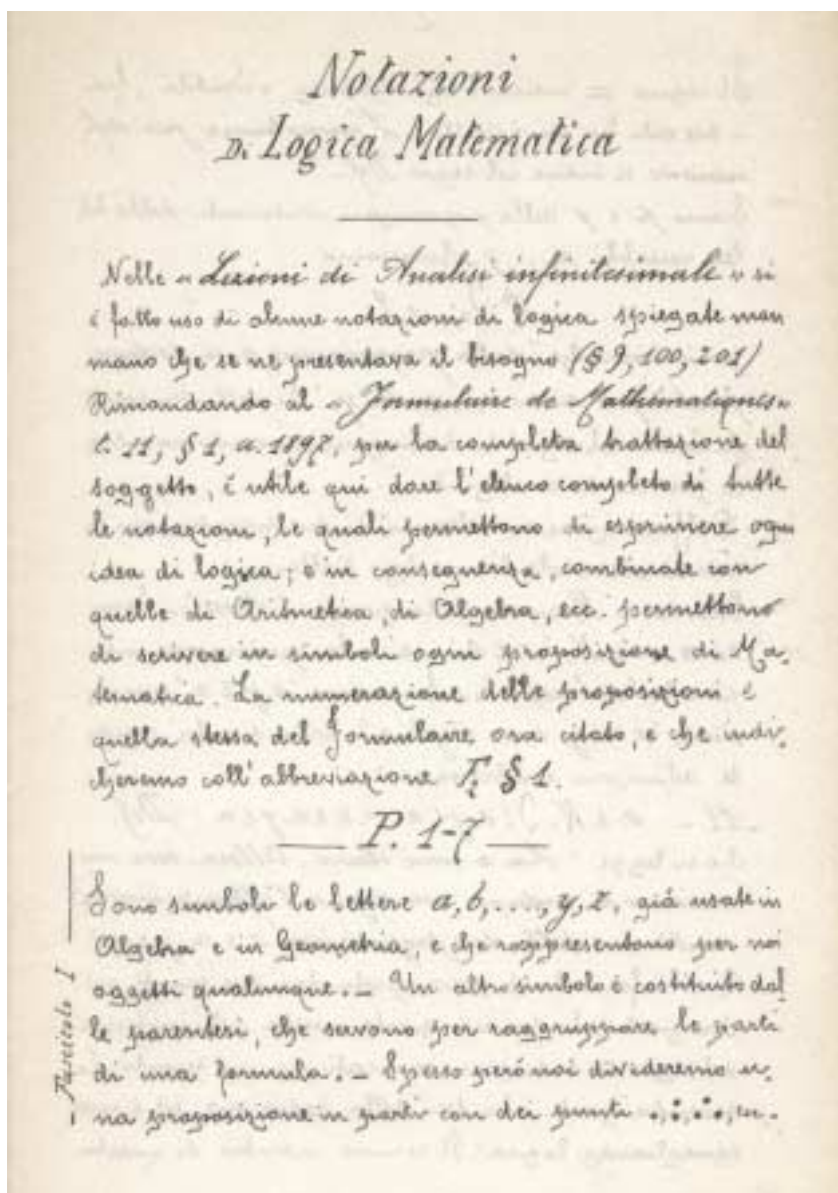 Notazioni
Di Logica Matematica
Nelle « Lezioni di Analisi infinitesimale » si
è fatto uso di alcune notazioni di logica spiegate man
mano che se ne presentava il bisogno (§ 9, 100, 201)
Rimandando al « Formulaire de Mathématiques »
t. II, § 1, a. 1897, per la completa trattazione del
soggetto, é utile qui dare l'elenco completo di tutte
le notazioni, le quali permettono di esprimere ogni
idea di logica; e in conseguenza, combinate con
quelle di Aritmetica, di Algebra, ecc. permettono
di scrivere in simboli ogni proposizione di Ma-
tematica. La numerazione delle proposizioni é
quella stessa del Formulaire ora citato, e che indi-
cheremo coll'abbreviazione F, § 1.
P. 1-7
Sono simboli le lettere a, b, ...., y, z, giá usate in
Algebra e in Geometria, e che rappresentano per noi
oggetti qualunque. – Un altro simbolo é costituito dal
le parentesi, che servono per raggruppare le parti
di una formula. – Spesso peró noi divideremo u-
na proposizione in parti con dei punti ., :, ∴, ecc.
Fascicolo I